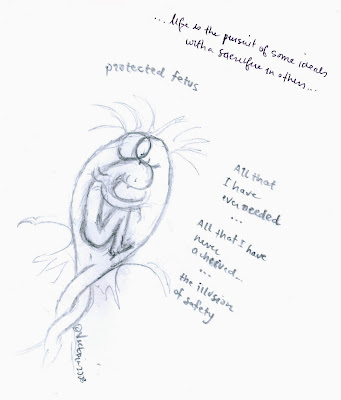 ...life is the pursuit of some ideals
with a sacrifice in others...
protected fetus
All that
I have
ever needed
...
All that I have
never
acheived...
...
the illusion
of safety